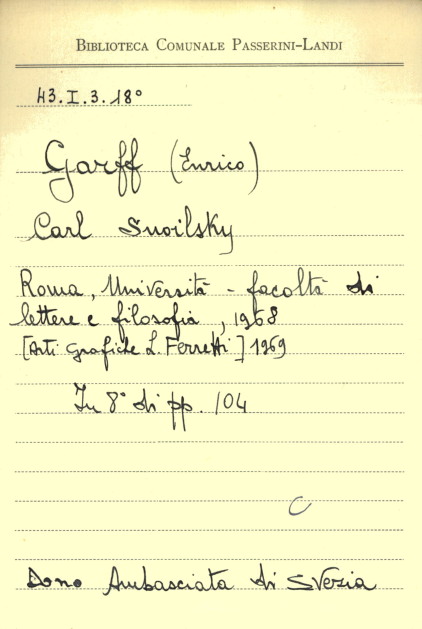 BIBLIOTECA COMUNALE PASSERINI-LANDI
43.I.3.18°
Garff (Enrico)
Carl Snoilsky
Roma, Università - facoltà di
lettere e filosofia, 1968
[Arti Grafiche L. Ferretti] 1969
In 8° di pp. 104
C
Dono Ambasciata di Svezia